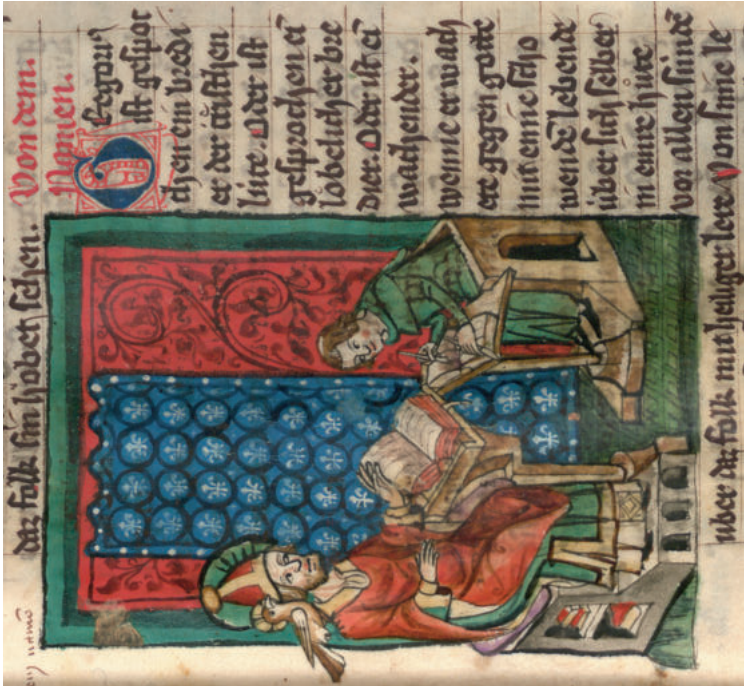 daz folk sin hober sehen. Von dem.
Namen.
ist gespor
chen ein bredi
er der cristhen
lúte. Oder ist
gesprochen eī
lobelicher bre
dier. Oder ist eī
wachender.
wenne er wach
ete gegen gotte
mit eime scho
wen dē lebende
úber sich selber
in eime húte
vor allen súnde
uber daz folk mit heiliger lere Von sime le